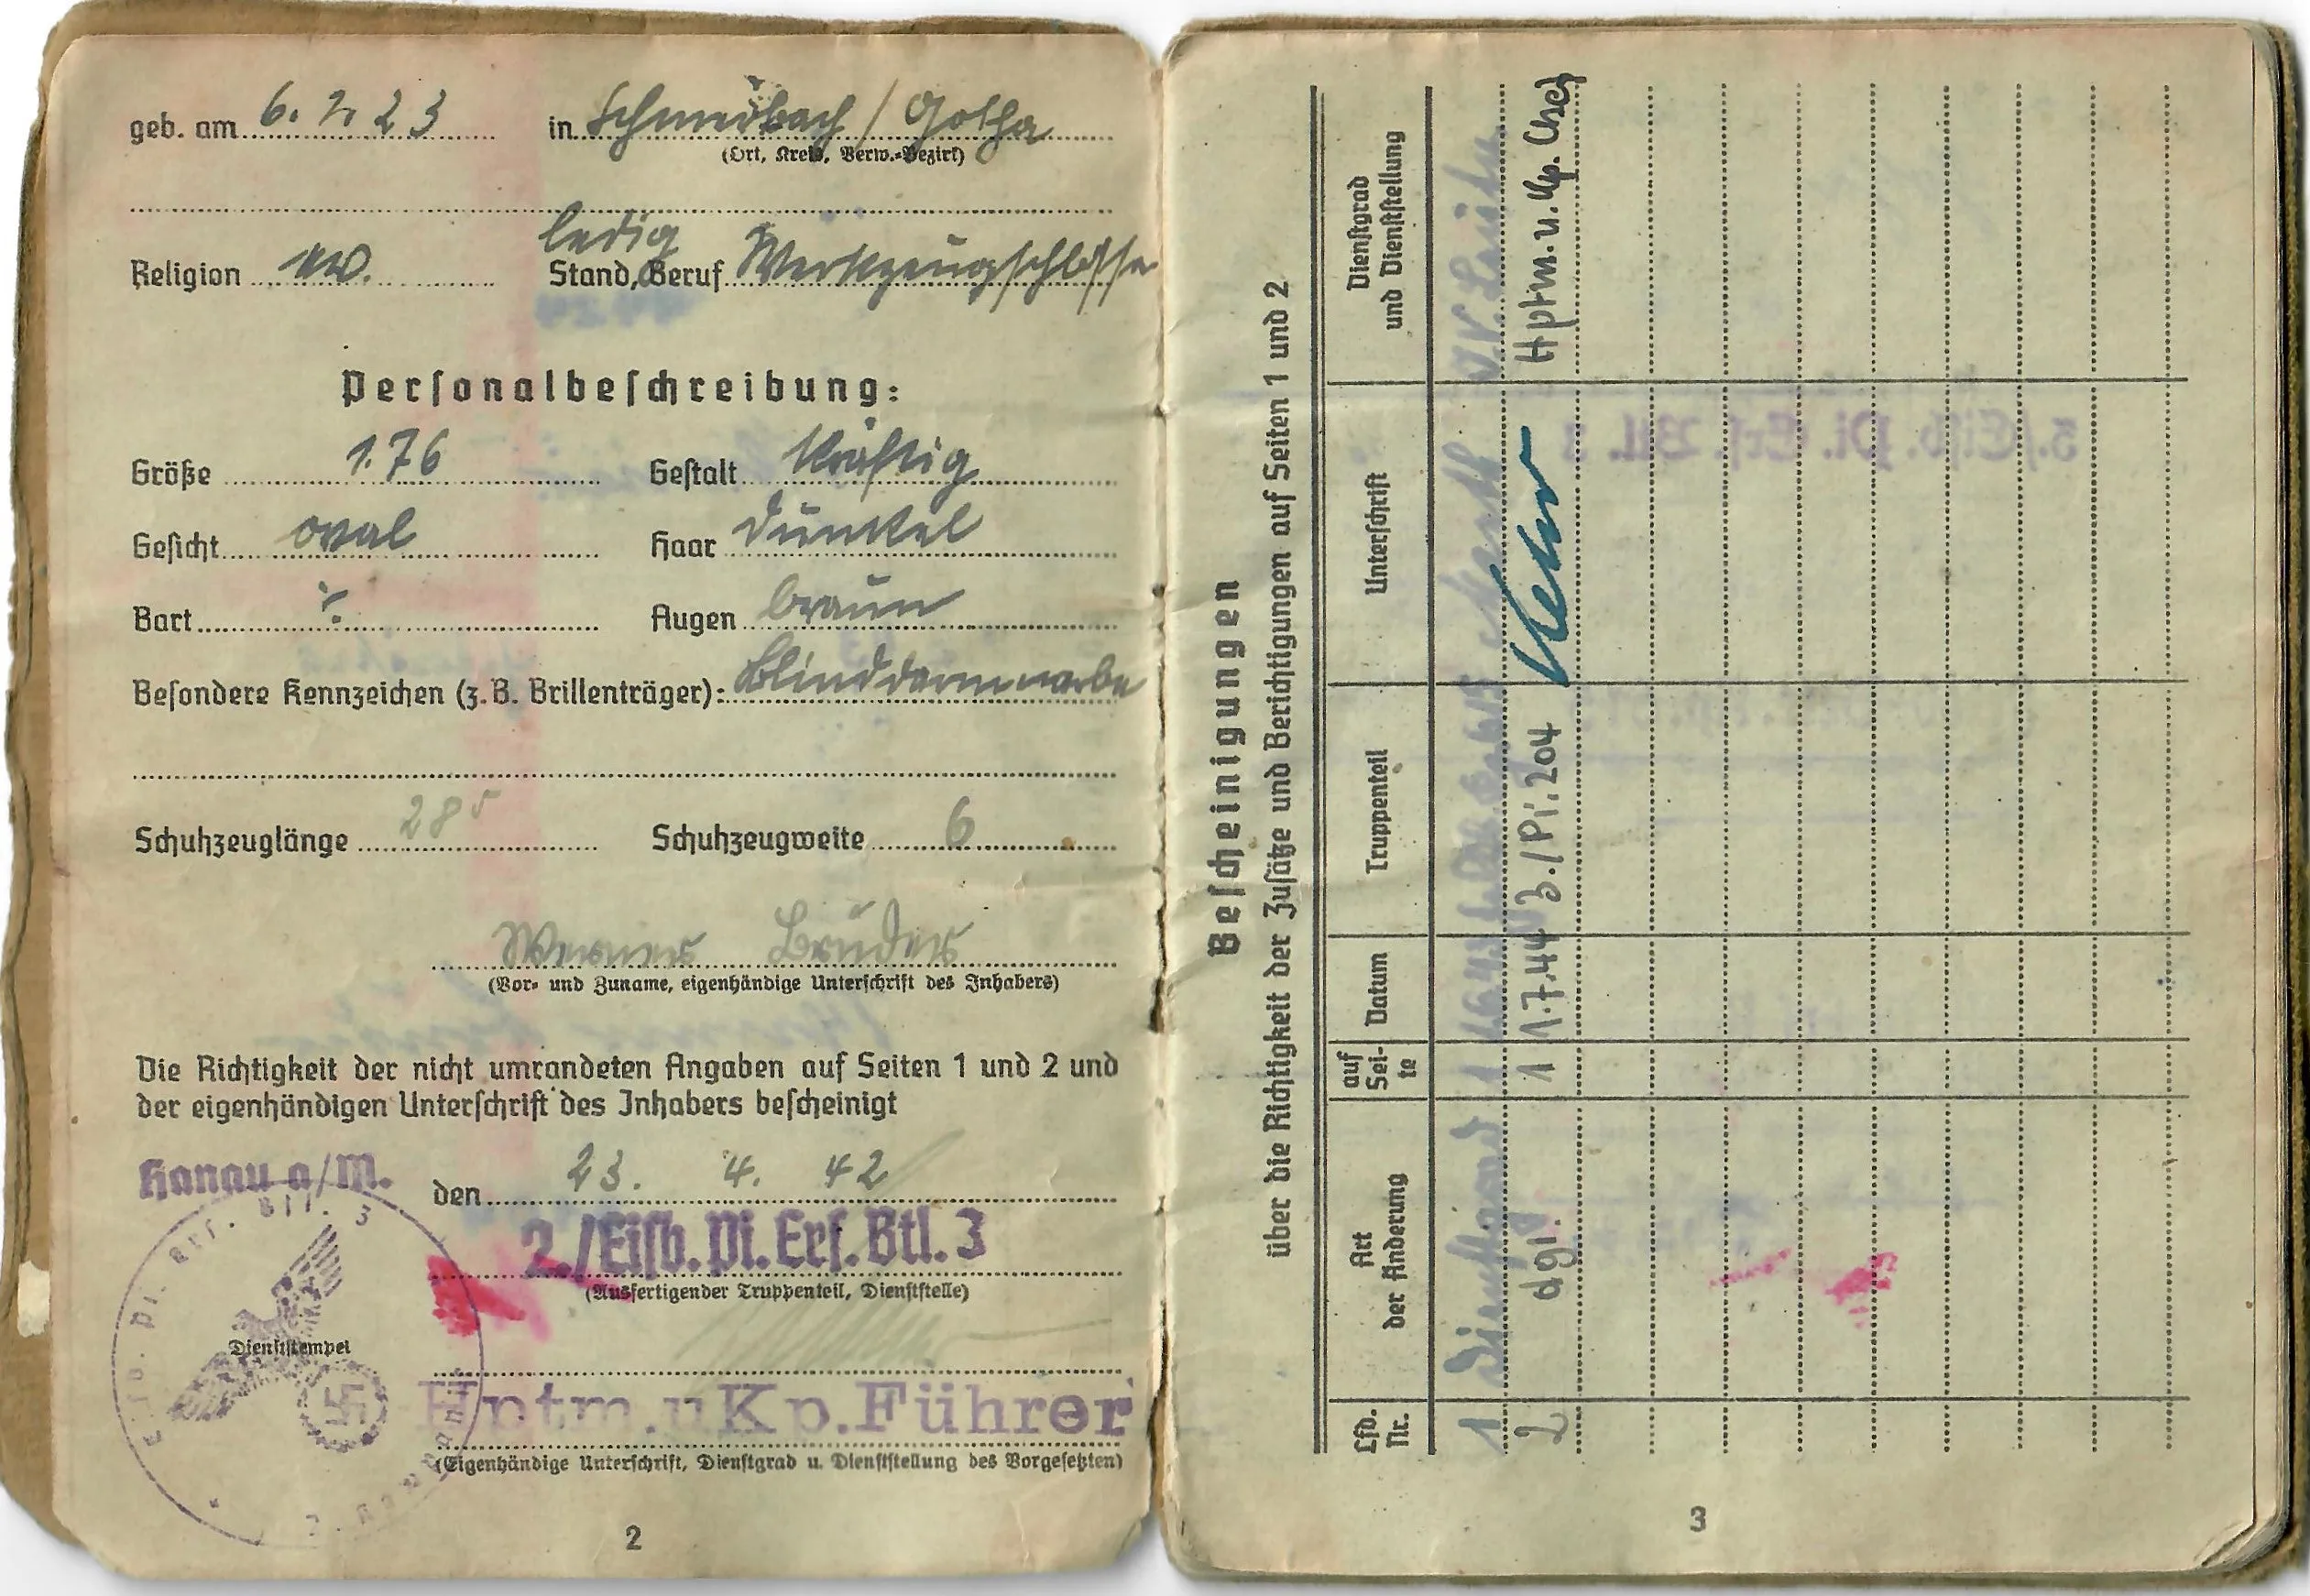 geb. am 6. 2. 23 in Schmerbach / Gotha
(Ort, Kreis, Verw.-Bezirk)
ledig
Religion ev. Stand, Beruf Werkzeugschlosser
Personalbeschreibung:
Größe 1.76 Gestalt kräftig
Gesicht oval Haar dunkel
Bart ./. Augen braun
Besondere Kennzeichen (z.B. Brillenträger): Blinddarmnarbe
Schuhzeuglänge 28⁵ Schuhzeugweite 6
Werner Bruder
(Vor- und Zuname, eigenhändige Unterschrift des Inhabers)
Die Richtigkeit der nicht umrandeten Angaben auf Seiten 1 und 2 und
der eigenhändigen Unterschrift des Inhabers bescheinigt
Hanau a/M. den 23. 4. 42
2./Eisb. Pi. Ers. Btl. 3
(Ausfertigender Truppenteil, Dienststelle)
Dienststempel
Hptm. u Kp. Führer
(Eigenhändige Unterschrift, Dienstgrad u. Dienststellung des Vorgesetzten)
2
Bescheinigungen
über die Richtigkeit der Zusätze und Berichtigungen auf Seiten 1 und 2
Lfd. Nr. Art der Änderung auf Seite Datum Truppenteil Unterschrift Dienstgrad und Dienststellung
1 Dienstgrad 1
2 dgl. 1 1.7.44 3./Pi. 204 Hptm. u. Kp. Chef
3